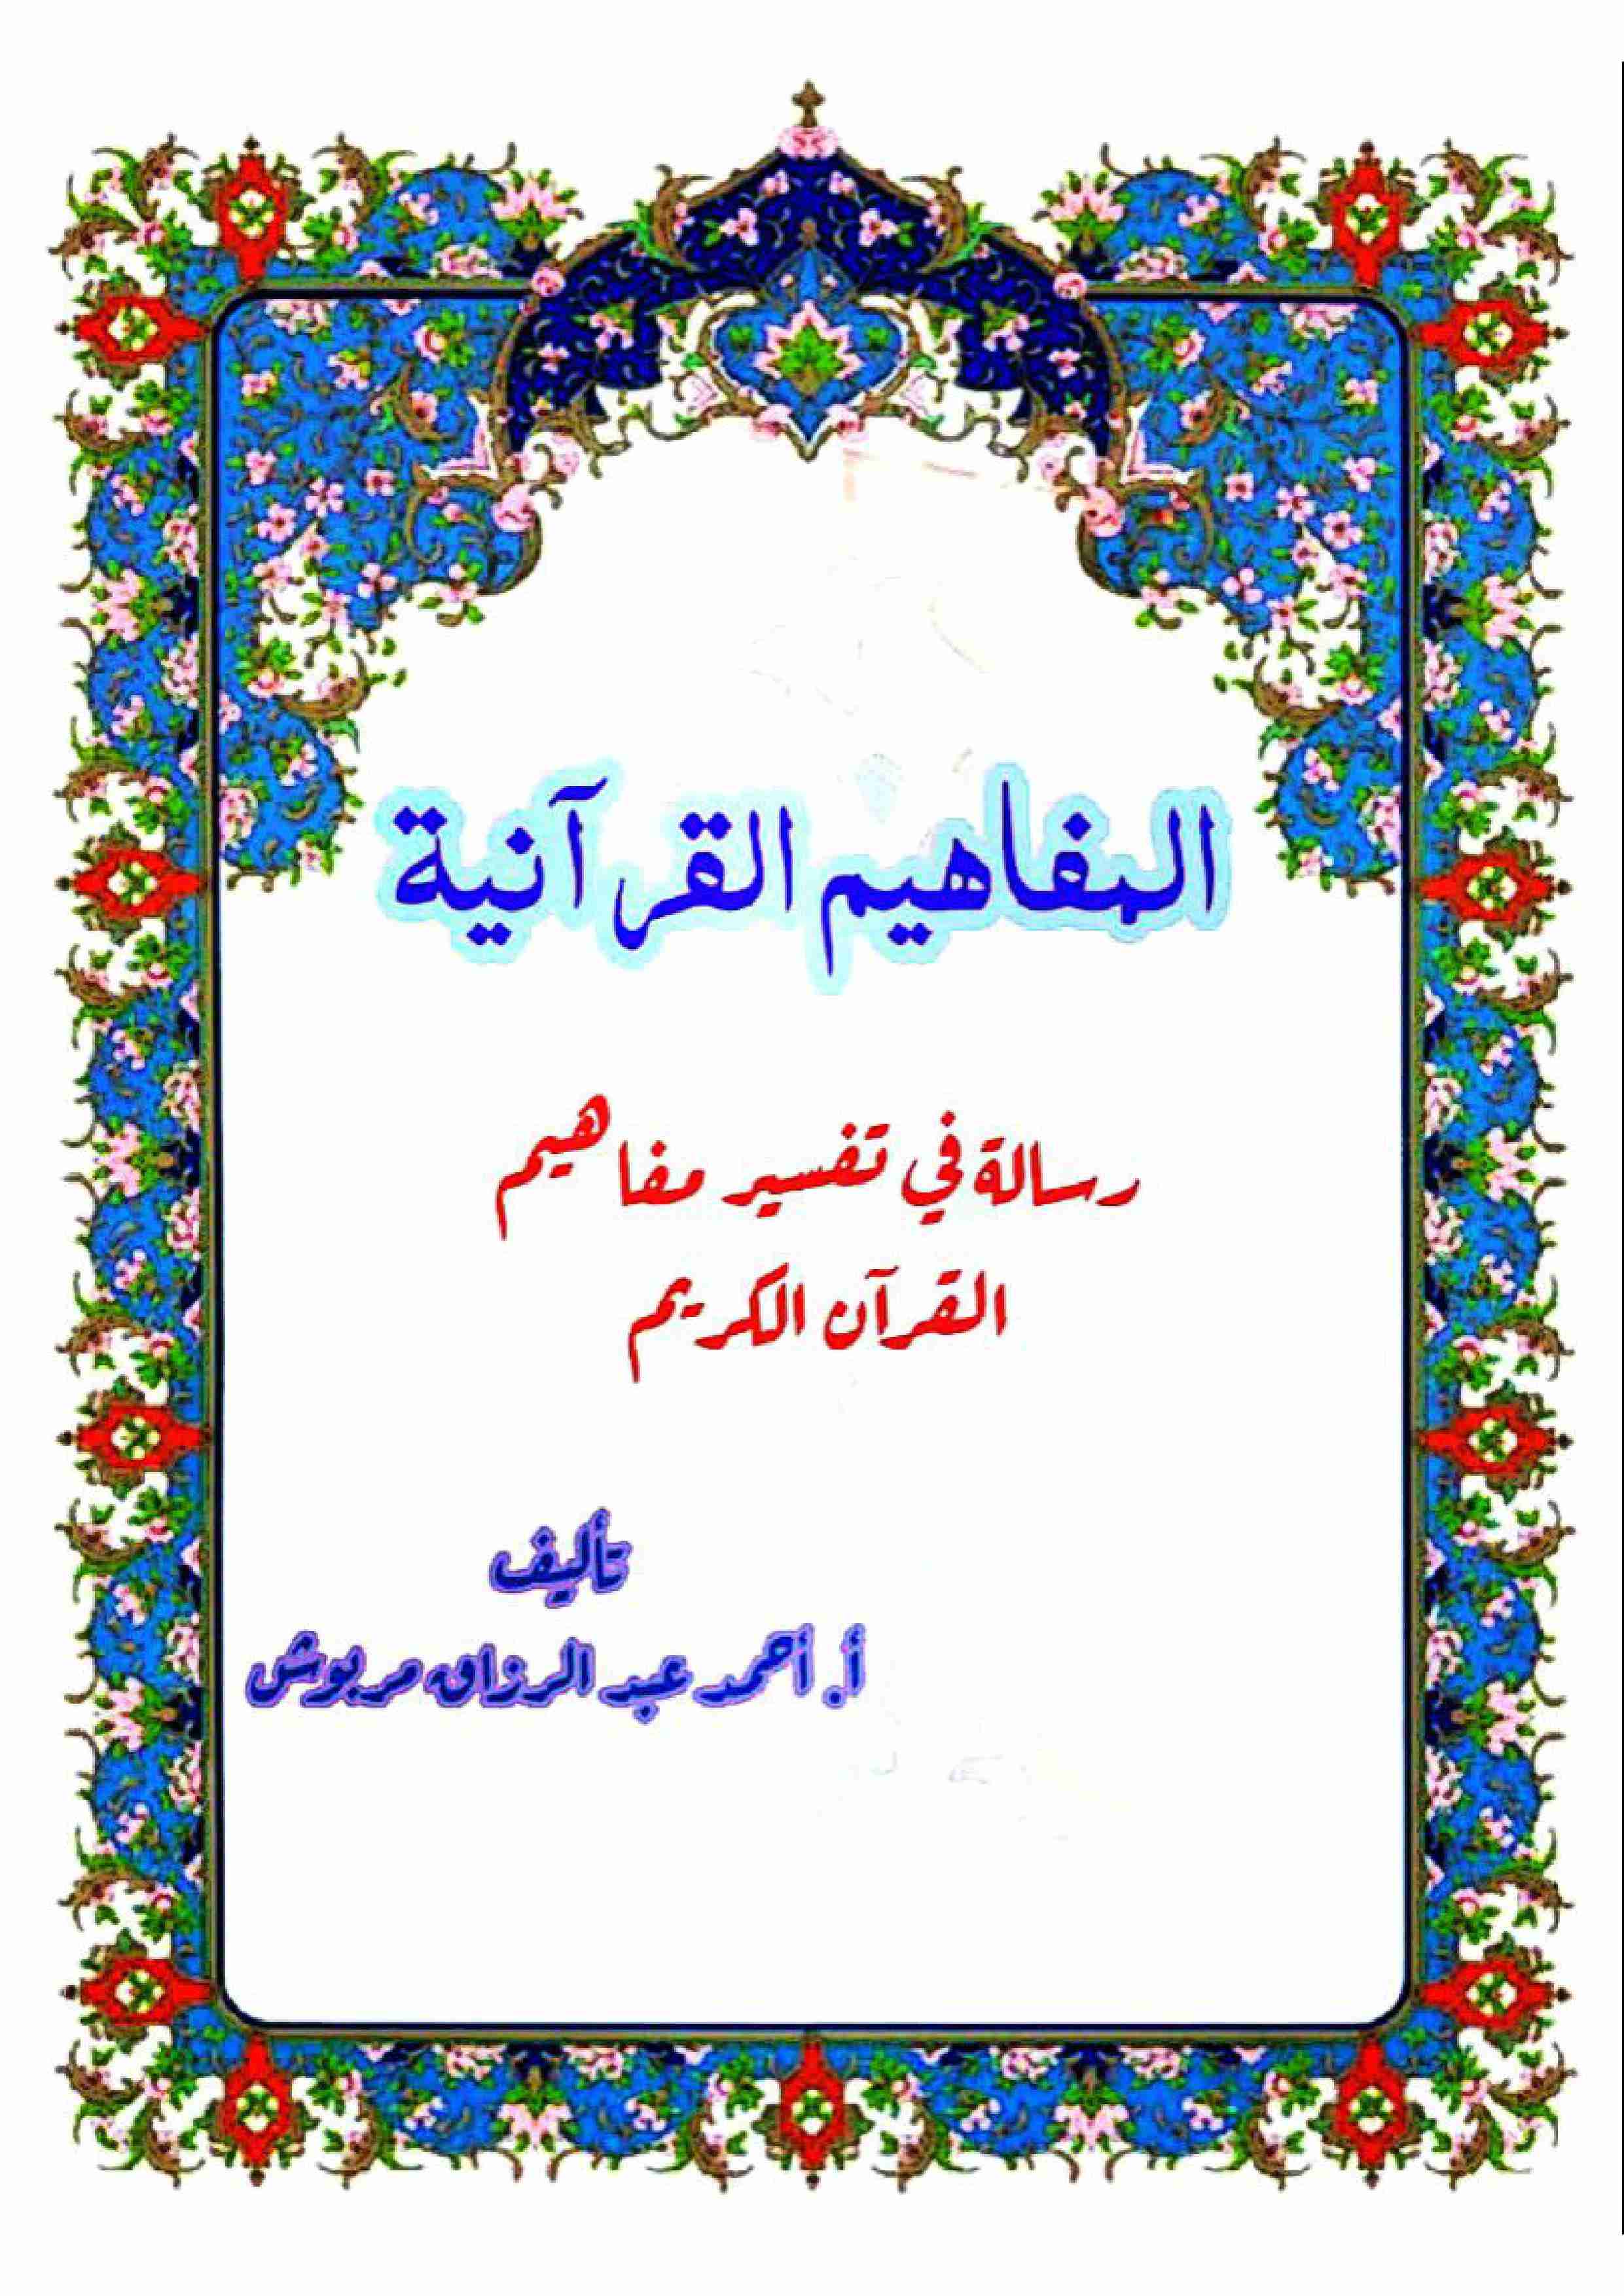 المفاهيم القرآنية
رسالة في تفسير مفاهيم
القرآن الكريم
تأليف
أ. أحمد عبد الرزاق مربوش